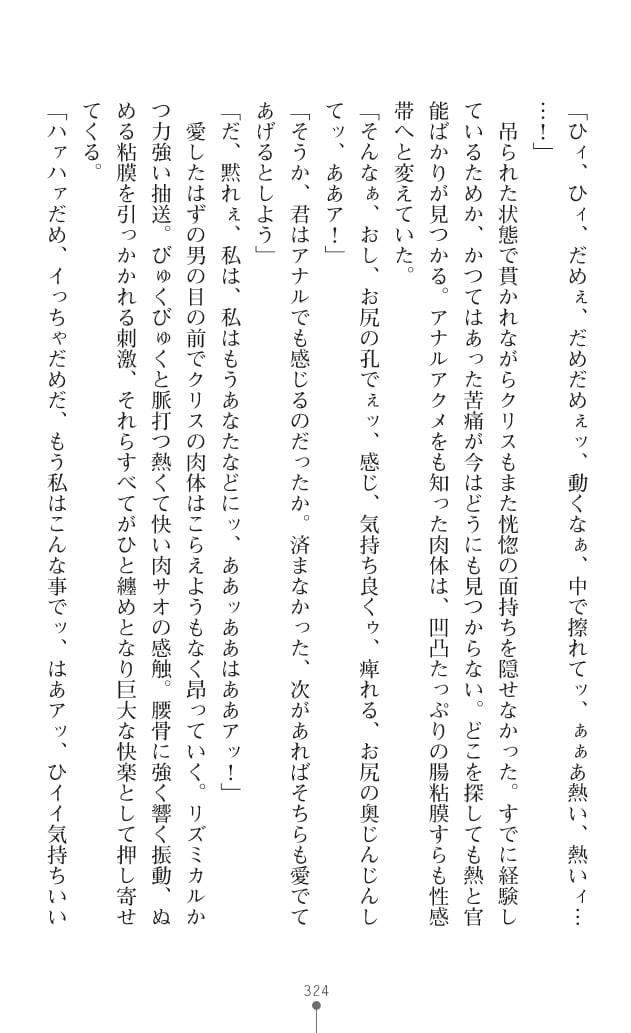 「ひィ、ひィ、だめぇ、だめだめぇッ、動くなぁ、中で擦れてッ、ぁぁあ熱い、熱いィ…
…！」
吊られた状態で貫かれながらクリスもまた恍惚の面持ちを隠せなかった。すでに経験し
ているためか、かつてはあった苦痛が今はどうにも見つからない。どこを探しても熱と官
能ばかりが見つかる。アナルアクメをも知った肉体は、凹凸たっぷりの腸粘膜すらも性感
帯へと変えていた。
「そんなぁ、おし、お尻の孔でぇッ、感じ、気持ち良くゥ、痺れる、お尻の奥じんじんし
てッ、ああア！」
「そうか、君はアナルでも感じるのだったか。済まなかった、次があればそちらも愛でて
あげるとしよう」
「だ、黙れぇ、私は、私はもうあなたなどにッ、ああッああはああアッ！」
愛したはずの男の目の前でクリスの肉体はこらえようもなく昂っていく。リズミカルか
つ力強い抽送。びゅくびゅくと脈打つ熱くて快い肉サオの感触。腰骨に強く響く振動、ぬ
める粘膜を引っかかれる刺激、それらすべてがひと纏めとなり巨大な快楽として押し寄せ
てくる。
「ハァハァだめ、イっちゃだめだ、もう私はこんな事でッ、はあアッ、ひイイ気持ちいい
324